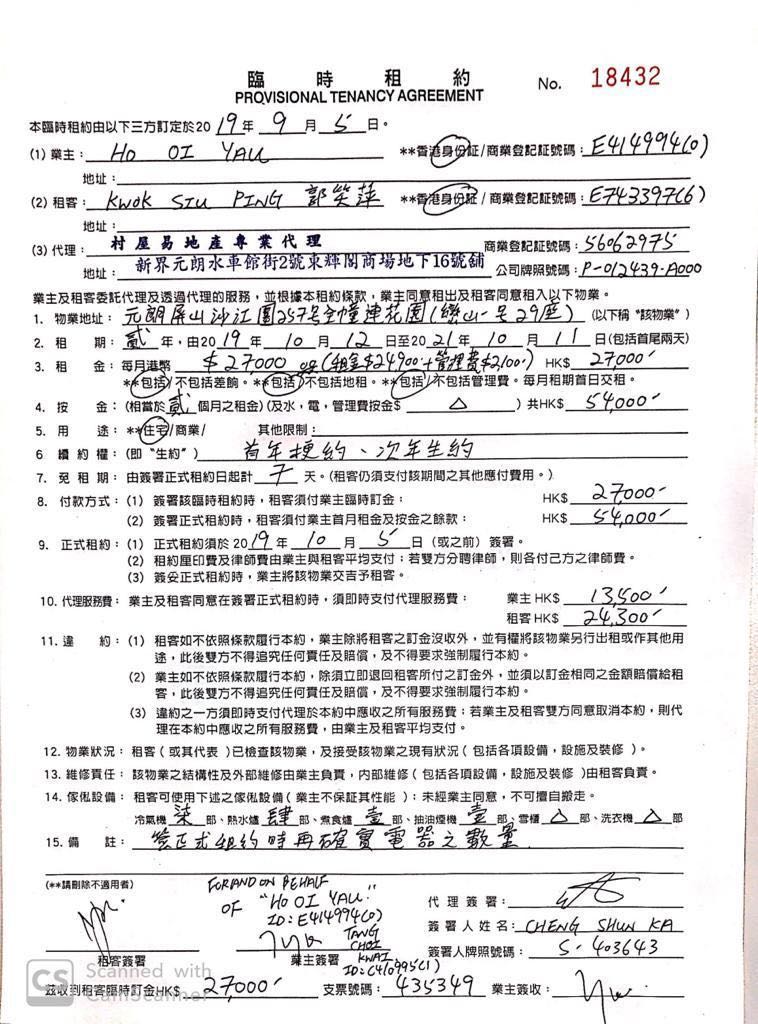 臨時租約
PROVISIONAL TENANCY AGREEMENT
No. 18432
本臨時租約由以下三方訂定於2019年9月5日。
(1) 業主：HO OI YAU **香港身份証/商業登記証號碼：E414994(0)
地址：
(2) 租客：KWOK SIU PING 郭笑萍 **香港身份証/商業登記証號碼：E743397(6)
地址：
(3) 代理：村屋易地產專業代理 商業登記証號碼：56062975
地址：新界元朗水車館街2號東輝閣商場地下16號舖 公司牌照號碼：P-012439-A000
業主及租客委託代理及透過代理的服務，並根據本租約條款，業主同意租出及租客同意租入以下物業。
1. 物業地址：元朗屏山沙江圍257号全幢連花園(巒山一号29座) (以下稱"該物業")
2. 租期：貳年，由2019年10月12日至2021年10月11日(包括首尾兩天)
3. 租金：每月港幣$27000 (租金$24900+管理費$2,100) HK$ 27,000
**包括/不包括差餉。**包括/不包括地租。**包括/不包括管理費。每月租期首日交租。
4. 按金：(相當於貳個月之租金)(及水，電，管理費按金$ △ ) 共HK$ 54,000
5. 用途：**住宅/商業/ 其他限制：
6 續約權：(即"生約") 首年梗約、次年生約
7. 免租期：由簽署正式租約日起計7天。(租客仍須支付該期間之其他應付費用。)
8. 付款方式：(1) 簽署該臨時租約時，租客須付業主臨時訂金： HK$ 27,000
(2) 簽署正式租約時，租客須付業主首月租金及按金之餘款： HK$ 54,000
9. 正式租約：(1) 正式租約須於2019年10月5日(或之前)簽署。
(2) 租約厘印費及律師費由業主與租客平均支付；若雙方分聘律師，則各付己方之律師費。
(3) 簽妥正式租約時，業主將該物業交吉予租客。
10. 代理服務費：業主及租客同意在簽署正式租約時，須即時支付代理服務費： 業主 HK$ 13,500
租客 HK$ 24,300
11. 違約：(1) 租客如不依照條款履行本約，業主除將租客之訂金沒收外，並有權將該物業另行出租或作其他用
途，此後雙方不得追究任何責任及賠償，及不得要求強制履行本約。
(2) 業主如不依照條款履行本約，除須立即退回租客所付之訂金外，並須以訂金相同之金額賠償給租
客，此後雙方不得追究任何責任及賠償，及不得要求強制履行本約。
(3) 違約之一方須即時支付代理於本約中應收之所有服務費；若業主及租客雙方同意取消本約，則代
理在本約中應收之所有服務費，由業主及租客平均支付。
12. 物業狀況：租客(或其代表)已檢查該物業，及接受該物業之現有狀況(包括各項設備，設施及裝修)。
13. 維修責任：該物業之結構性及外部維修由業主負責，内部維修(包括各項設備，設施及裝修)由租客負責。
14. 傢俬設備：租客可使用下述之傢俬設備(業主不保証其性能)；未經業主同意，不可擅自搬走。
冷氣機柒部、熱水爐肆部、煮食爐壹部、抽油煙機壹部、雪櫃△部、洗衣機△部
15. 備註：簽正式租約時再確實電器之數量
(**請刪除不適用者)
FOR AND ON BEHALF
OF "HO OI YAU."
ID: E414994(0)
TANG
CHOI
KWAI
ID: C410995(1)
租客簽署
業主簽署
代理簽署：
簽署人姓名：CHENG SHUN KA
簽署人牌照號碼：S-403643
茲收到租客臨時訂金HK$ 27,000 支票號碼：435349 業主簽收：
CS Scanned with
CamScanner